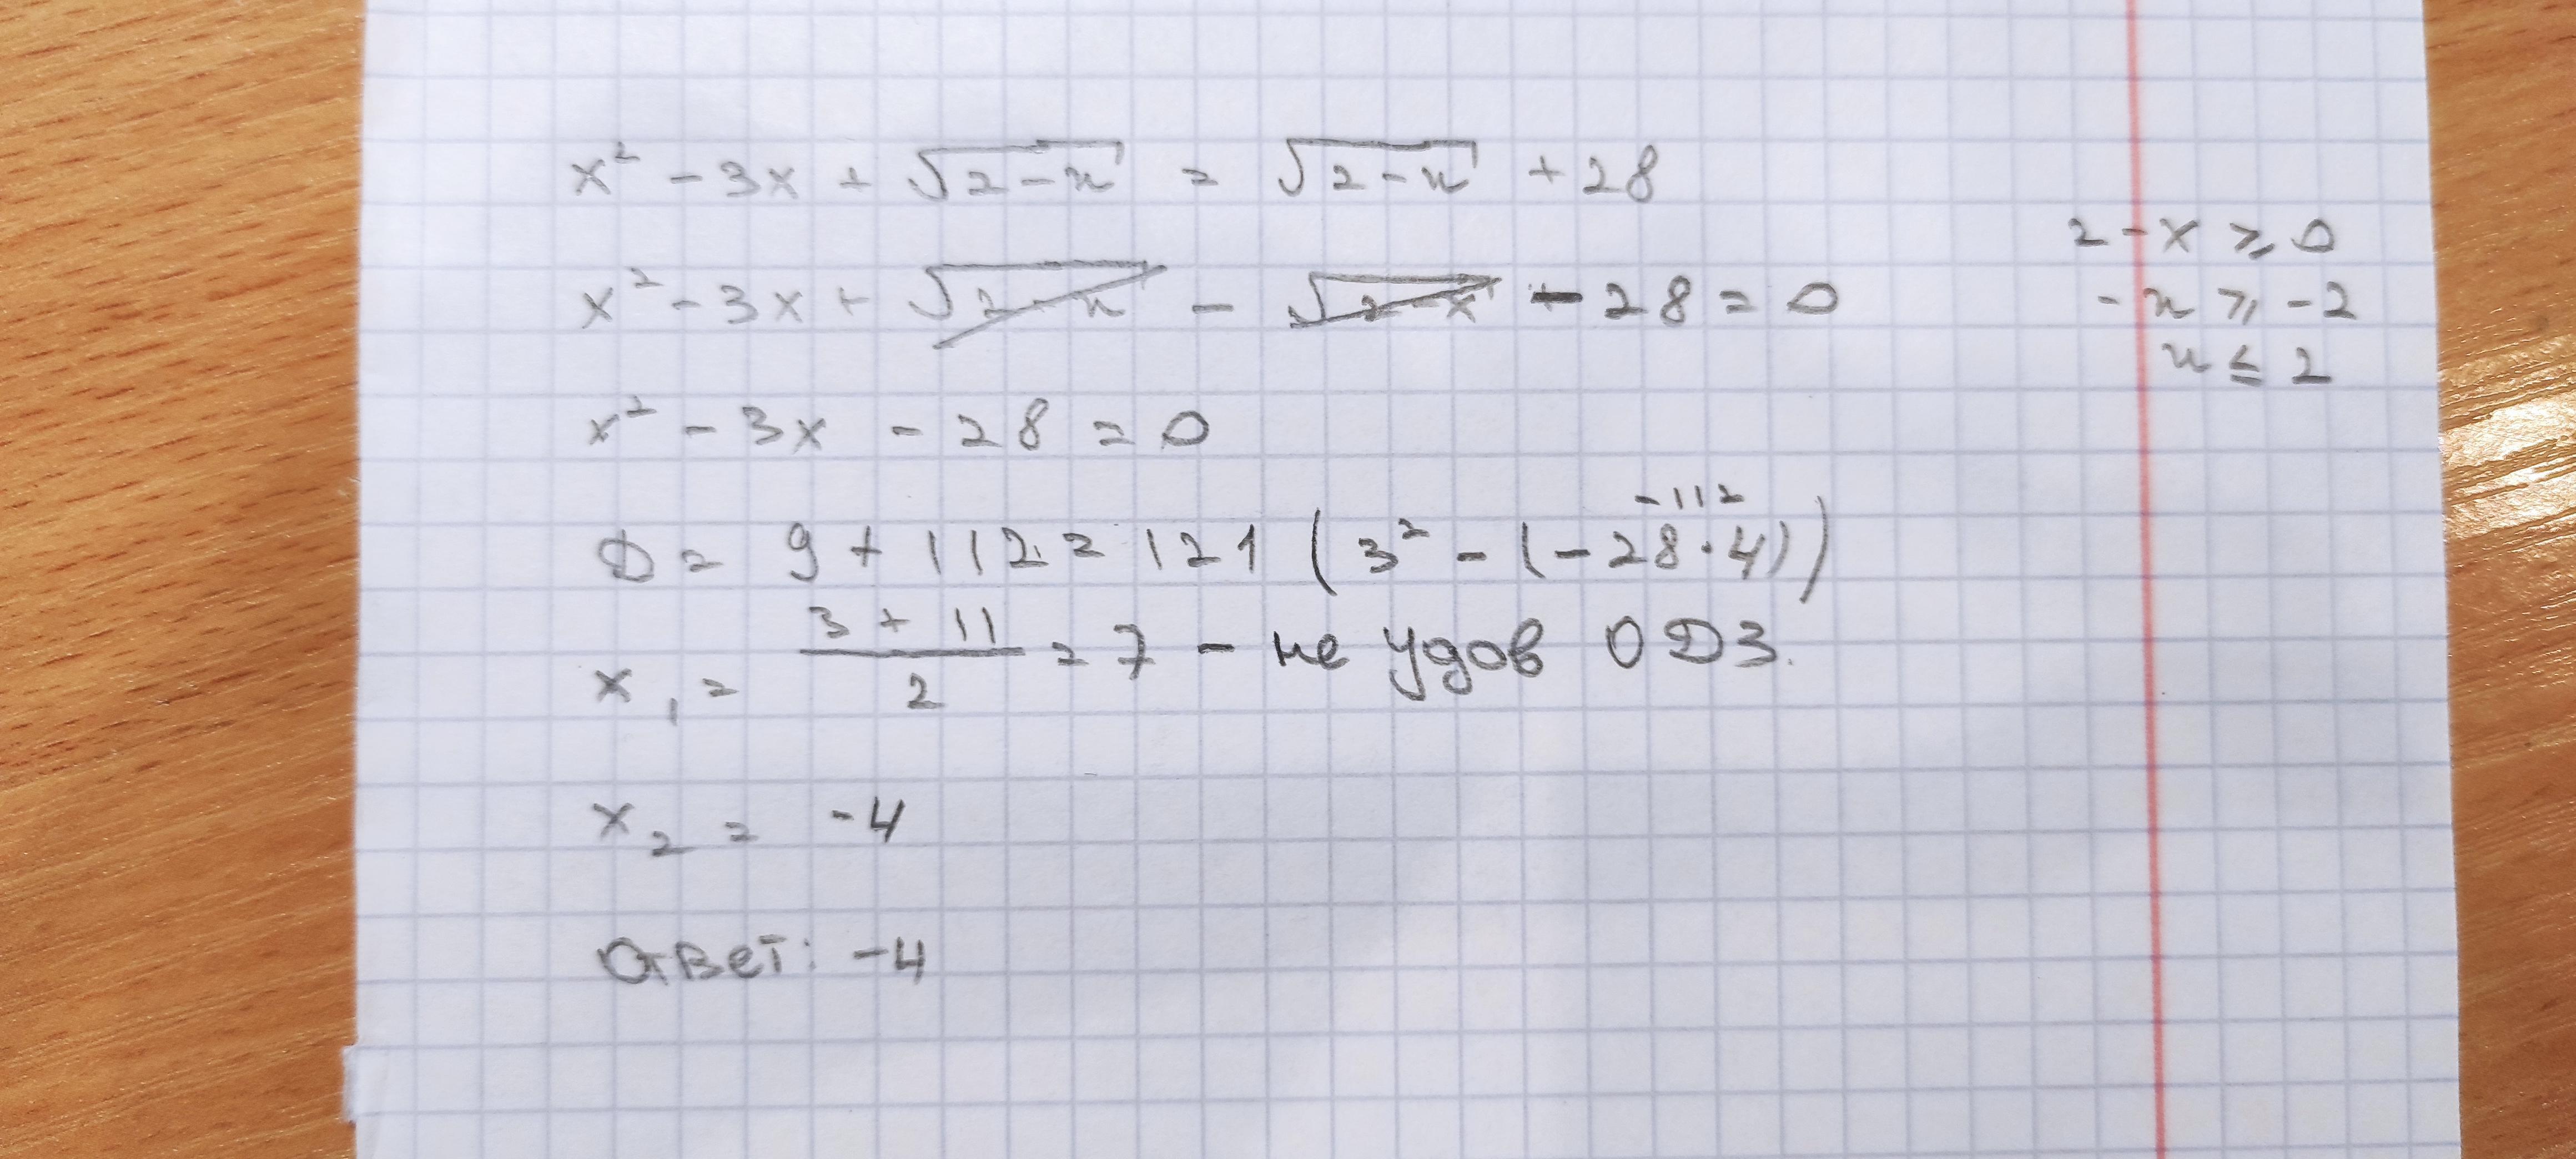 x² - 3x + √(2-x) = √(2-x) + 28
x² - 3x + √(2-x) - √(2-x) - 28 = 0
2 - x ⩾ 0
- x ⩾ -2
x ≤ 2
x² - 3x - 28 = 0
-112
D = 9 + 112 = 121 (3² - (-28·4))
x₁ = (3 + 11)/2 = 7 - не удов ОДЗ.
x₂ = -4
Ответ: -4